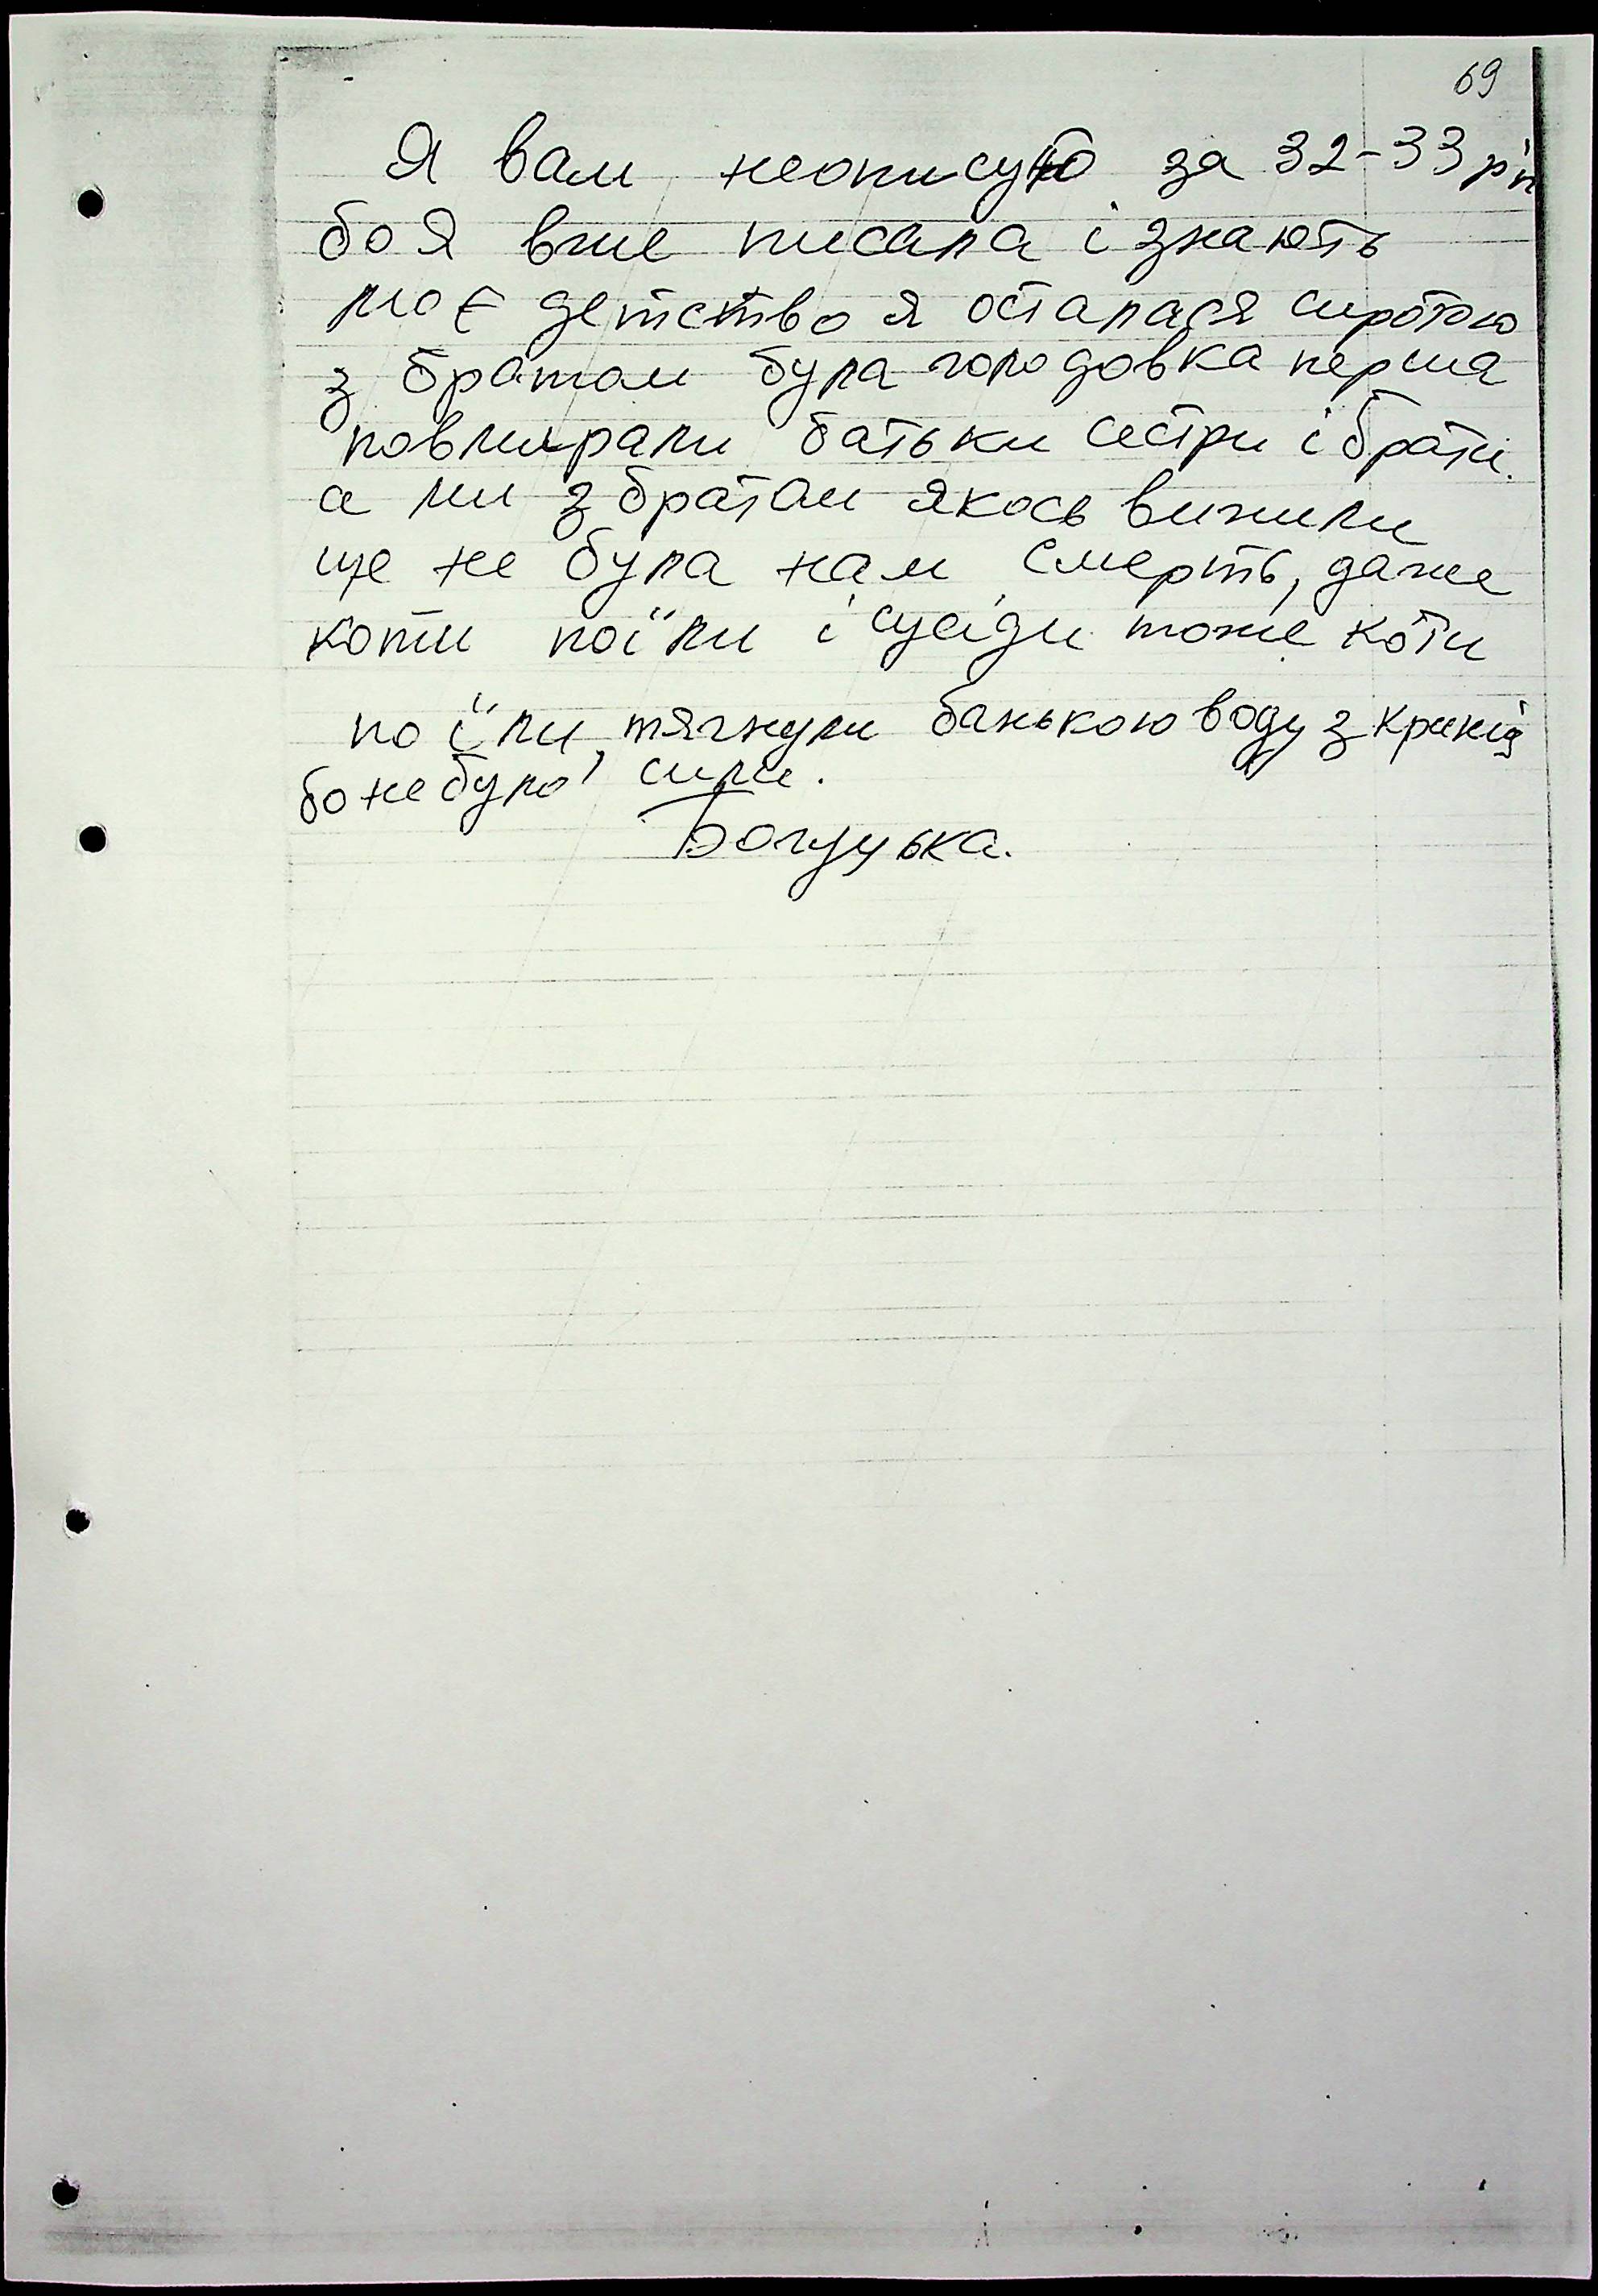 69
Я вам неописую за 32-33 рік
бо я вже писала і знають
моє детство я осталася сиротою
з братом була голодовка перша
повмирали батьки сестри і брати.
а ми з братом якось вижили
ще не була нам смерть, даже
коти поїли і сусіди тоже коти
поїли, тягнули банькою воду з криниці
бо не було сили.